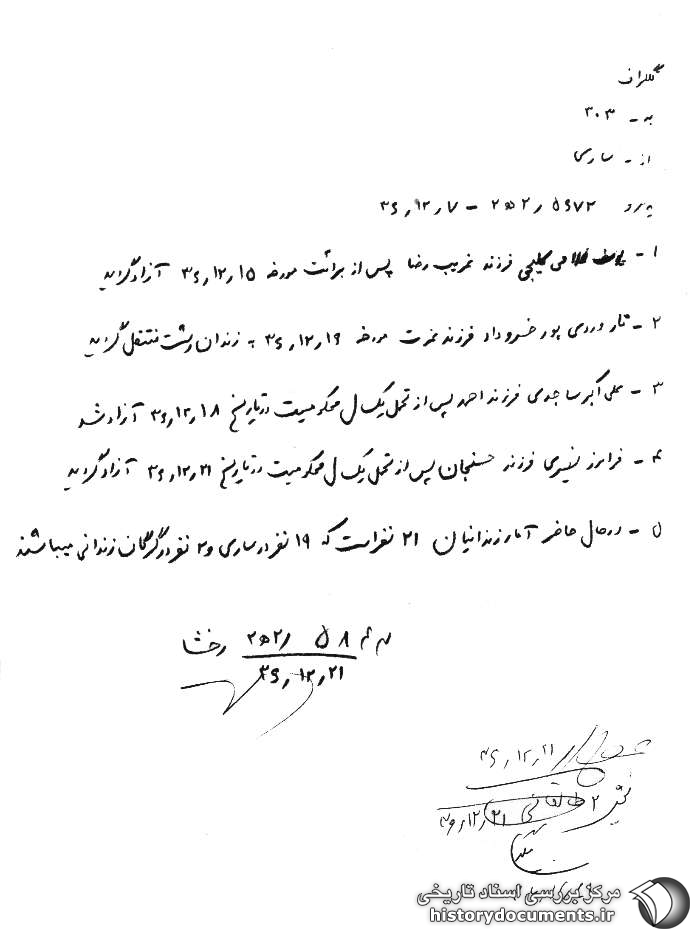 تلگراف
به - ۳۰۳
از - ساری
پیرو ۲ه۲/۵۶۷۲ - ۳۶/۱۲/۷
۱ - یوسف غلامی گلیجی فرزند غریب رضا پس از برائت مورخه ۳۶/۱۲/۱۵ آزاد گردید
۲ - تار وردی پور خسرو داد فرزند نمرت مورخه ۳۶/۱۲/۱۹ به زندان رشت منتقل گردید
۳ - علی اکبر ساجدی فرزند احمد پس از تحمل یکسال محکومیت در تاریخ ۳۶/۱۲/۱۸ آزاد شد
۴ - فرامرز نصیری فرزند حسنجان پس از تحمل یکسال محکومیت در تاریخ ۳۶/۱۲/۲۱ آزاد گردید
۵ - در حال حاضر آمار زندانیان ۲۱ نفر است که ۱۹ نفر در ساری و ۲ نفر در گرگان زندانی میباشند
۲ه۲/ ۵۸ رخشا
۳۶/۱۲/۲۱
۳۶/۱۲/۲۱
۲ طالقانی
۳۶/۱۲/۲۱
مرکز بررسی اسناد تاریخی
historydocuments.ir